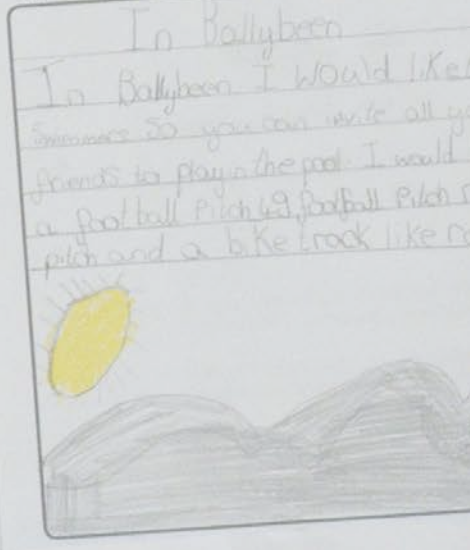 In Ballybeen
In Ballybeen I would like
so you can invite all
friends to play in the pool. I would
a football Pitch football Pitch
pitch and a bike track like